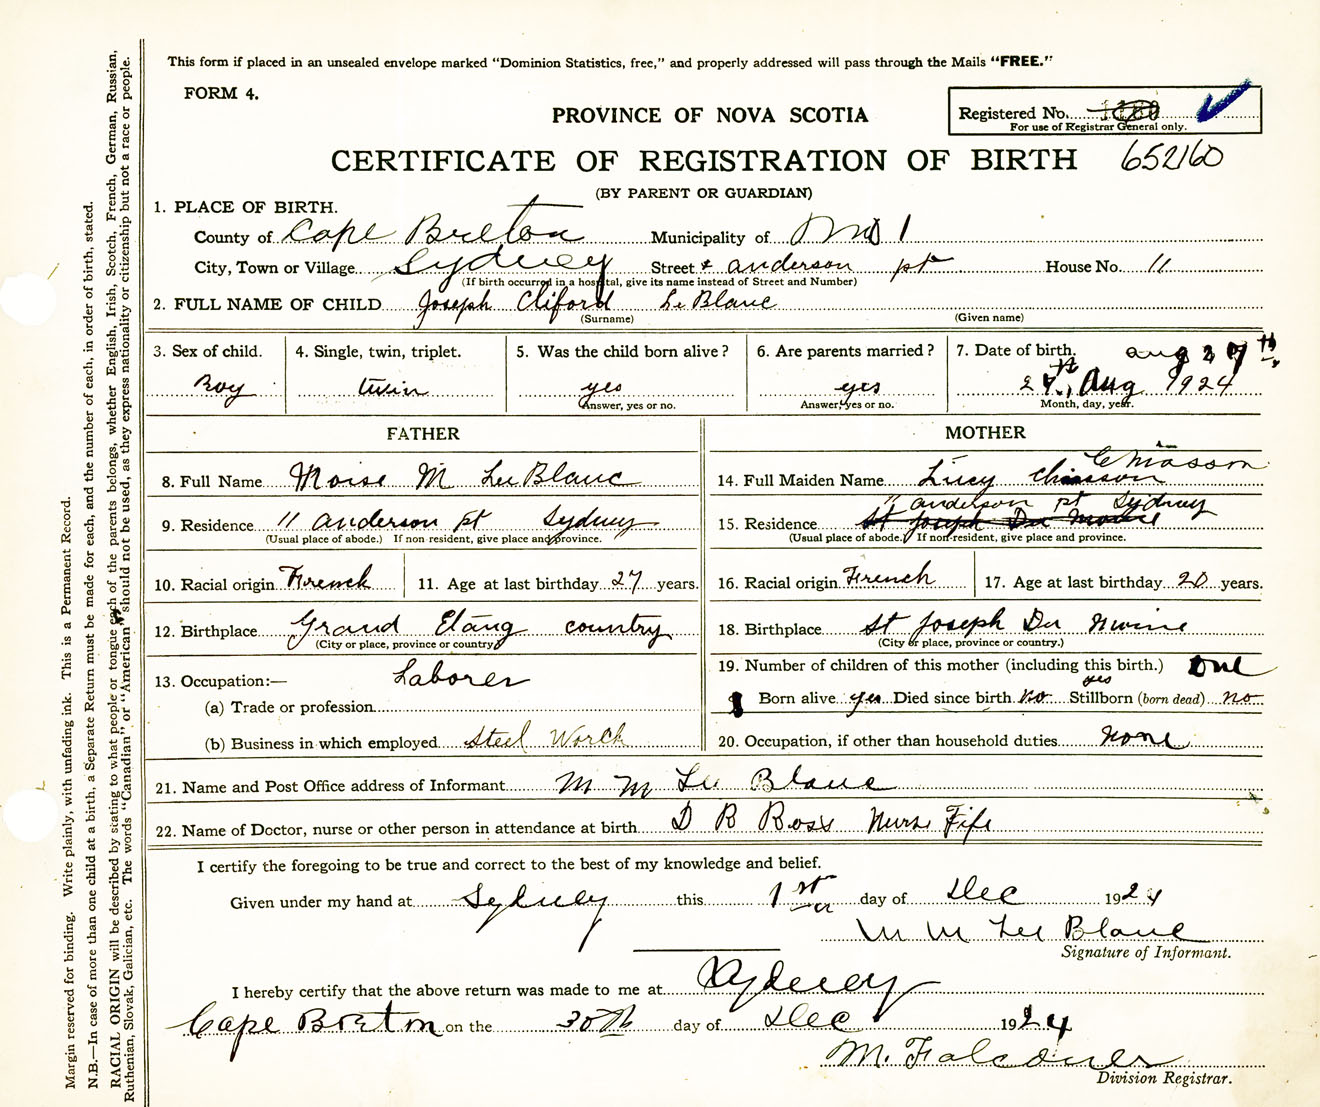 This form if placed in an unsealed envelope marked "Dominion Statistics, free," and properly addressed will pass through the Mails "FREE."
FORM 4.
PROVINCE OF NOVA SCOTIA
Registered No.
For use of Registrar General only.
CERTIFICATE OF REGISTRATION OF BIRTH 652160
(BY PARENT OR GUARDIAN)
1. PLACE OF BIRTH.
County of Cape Breton Municipality of
City, Town or Village Sydney Street & anderson pt House No. 11
(If birth occurred in a hospital, give its name instead of Street and Number)
2. FULL NAME OF CHILD Joseph Cliford LeBlanc
(Surname) (Given name)
3. Sex of child. 4. Single, twin, triplet. 5. Was the child born alive? 6. Are parents married? 7. Date of birth. aug 27th
Boy twin yes yes 27th, Aug 1924
Answer, yes or no. Answer, yes or no. Month, day, year.
FATHER MOTHER
8. Full Name Moise M LeBlanc
14. Full Maiden Name Lucy Chiasson Chiasson
9. Residence 11 anderson pt Sydney
(Usual place of abode.) If non resident, give place and province.
15. Residence 11 anderson pt Sydney
St Joseph Du Moine
(Usual place of abode.) If non-resident, give place and province.
10. Racial origin French 11. Age at last birthday 27 years.
16. Racial origin French 17. Age at last birthday 20 years.
12. Birthplace Grand Etang country
(City or place, province or country)
18. Birthplace St Joseph Du Moine
(City or place, province or country.)
13. Occupation:— Laborer
(a) Trade or profession
(b) Business in which employed Steel Work
19. Number of children of this mother (including this birth.) One
Born alive yes Died since birth no Stillborn (born dead) no
yes
20. Occupation, if other than household duties none
21. Name and Post Office address of Informant M M LeBlanc
22. Name of Doctor, nurse or other person in attendance at birth D R Ross Nurse Fife
I certify the foregoing to be true and correct to the best of my knowledge and belief.
Given under my hand at Sydney this 1st day of Dec 1924
M M LeBlanc
Signature of Informant.
I hereby certify that the above return was made to me at Sydney
Cape Breton on the 30th day of Dec 1924
M. Falconer
Division Registrar.
Margin reserved for binding. Write plainly, with unfading ink. This is a Permanent Record.
N.B.—In case of more than one child at a birth, a Separate Return must be made for each, and the number of each, in order of birth, stated.
RACIAL ORIGIN will be described by stating to what people or tongue each of the parents belongs, whether English, Irish, Scotch, French, German, Russian,
Ruthenian, Slovak, Galician, etc. The words "Canadian" or "American" should not be used, as they express nationality or citizenship but not a race or people.